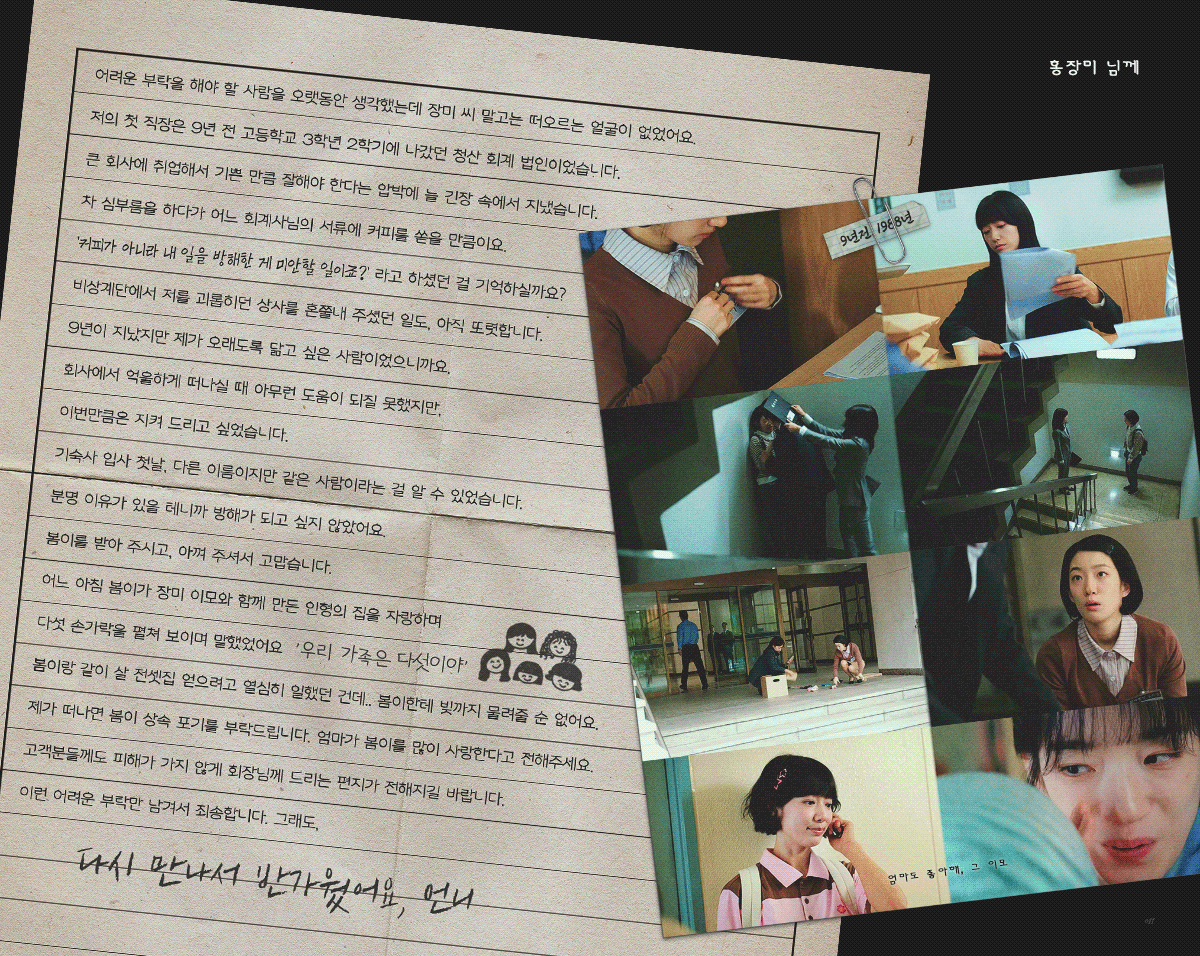 홍장미 님께
어려운 부탁을 해야 할 사람을 오랫동안 생각했는데 장미 씨 말고는 떠오르는 얼굴이 없었어요.
저의 첫 직장은 9년 전 고등학교 3학년 2학기에 나갔던 청산 회계 법인이었습니다.
큰 회사에 취업해서 기쁜 만큼 잘해야 한다는 압박에 늘 긴장 속에서 지냈습니다.
차 심부름을 하다가 어느 회계사님의 서류에 커피를 쏟을 만큼이요.
'커피가 아니라 내 일을 방해한 게 미안할 일이죠?' 라고 하셨던 걸 기억하실까요?
비상계단에서 저를 괴롭히던 상사를 혼쭐내 주셨던 일도, 아직 또렷합니다.
9년이 지났지만 제가 오래도록 닮고 싶은 사람이었으니까요.
회사에서 억울하게 떠나실 때 아무런 도움이 되질 못했지만,
이번만큼은 지켜 드리고 싶었습니다.
기숙사 입사 첫날, 다른 이름이지만 같은 사람이라는 걸 알 수 있었습니다.
분명 이유가 있을 테니까 방해가 되고 싶지 않았어요.
봄이를 받아 주시고, 아껴 주셔서 고맙습니다.
어느 아침 봄이가 장미 이모와 함께 만든 인형의 집을 자랑하며
다섯 손가락을 펼쳐 보이며 말했었어요 '우리 가족은 다섯이야'
봄이랑 같이 살 전셋집 얻으려고 열심히 일했던 건데.. 봄이한테 빚까지 물려줄 순 없어요.
제가 떠나면 봄이 상속 포기를 부탁드립니다. 엄마가 봄이를 많이 사랑한다고 전해주세요.
고객분들께도 피해가 가지 않게 회장님께 드리는 편지가 전해지길 바랍니다.
이런 어려운 부탁만 남겨서 죄송합니다. 그래도,
다시 만나서 반가웠어요, 언니
9년전 1988년
엄마도 좋아해, 그 이모